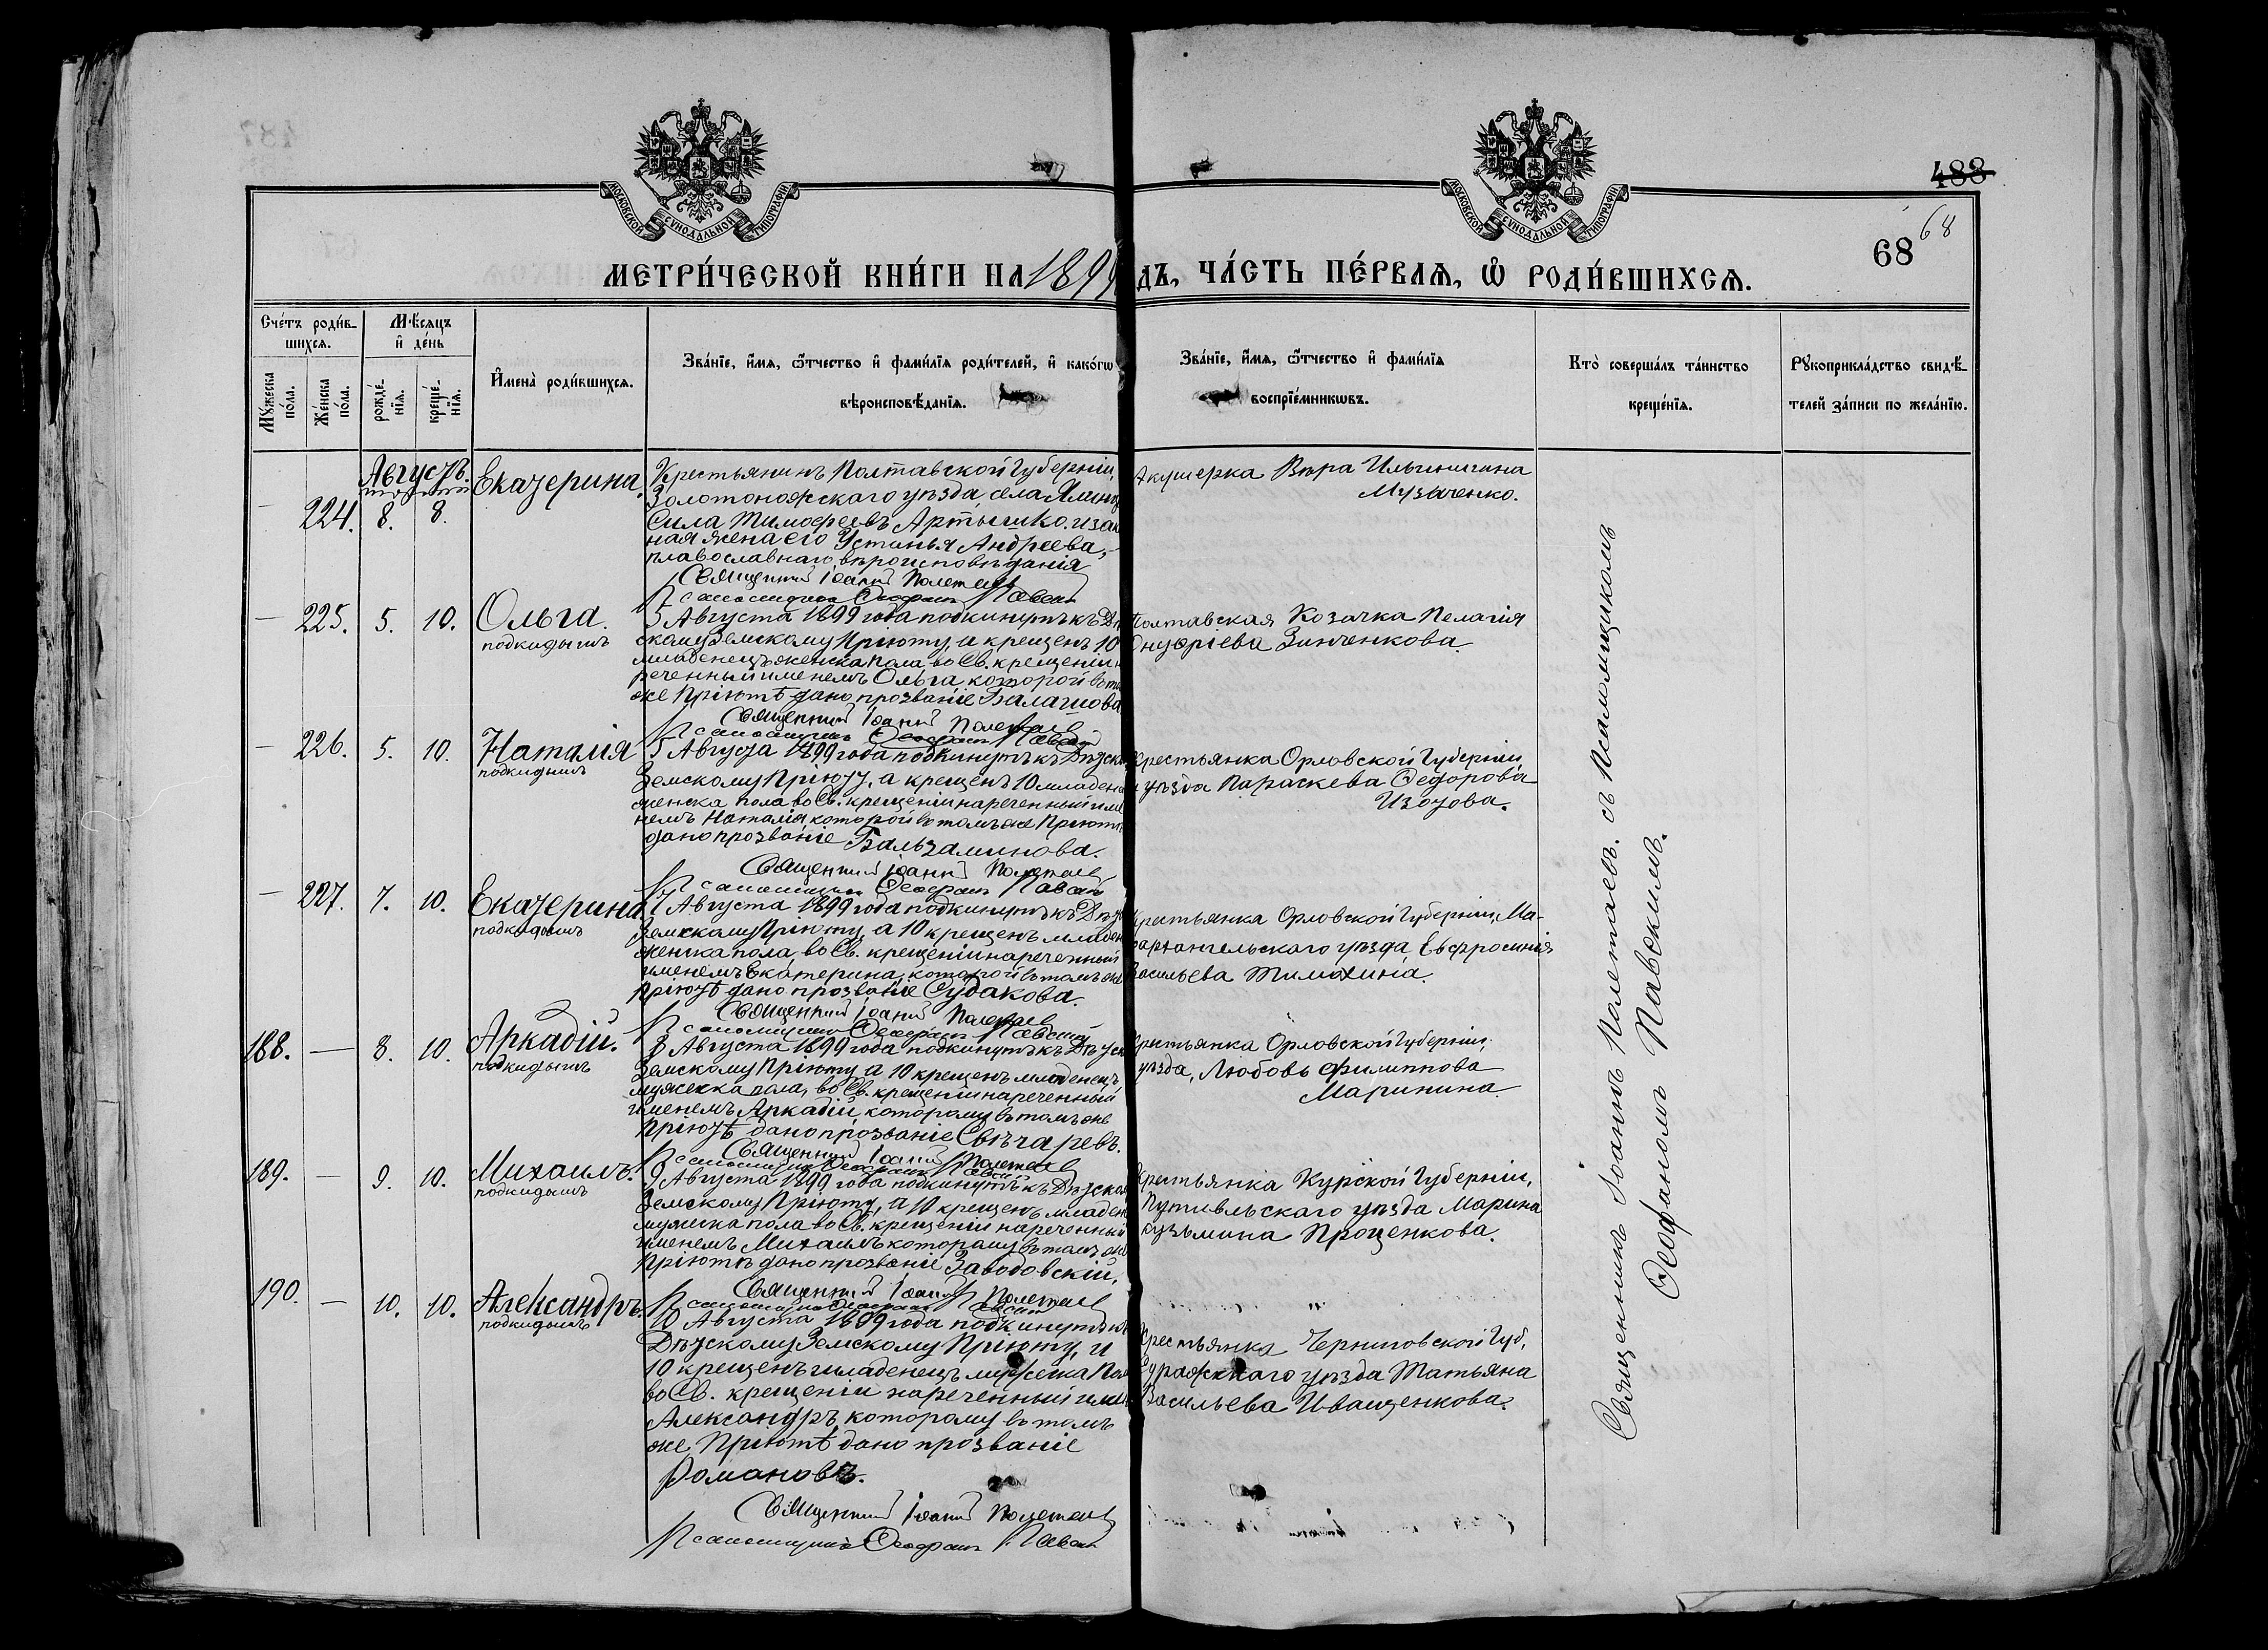 488
68
68
МОСКОВСКОЙ СѴНОДАЛЬНОЙ ТИПОГРАФІИ
МОСКОВСКОЙ СѴНОДАЛЬНОЙ ТИПОГРАФІИ
МЕТРИ́ЧЕСКОЙ КНИ́ГИ НА 1899
ДЪ, ЧА́СТЬ ПЕ́РВАЯ, Ѡ РОДИ́ВШИХСЯ.
Сче́тъ роди́в-
шихся.
Мѣ́сяцъ
и де́нь
Мꙋ́жеска
по́ла.
Же́нска
по́ла.
рожде́-
нїя.
креще́-
нїя.
Имена̀ роди́вшихся.
Зва́нїе, и́мя, ѻ́тчество и фами́лїя роди́телей, и како́гѡ
вѣроисповѣ́данїя.
Зва́нїе, и́мя, ѻ́тчество и фами́лїя
воспрїе́мникѡвъ.
Кто̀ соверша́лъ та́инство
креще́нїя.
Рꙋкоприкла́дство свидѣ́-
телей за́писи по жела́нїю.
Августъ.
224. 8. 8. Екатерина.
Крестьянинъ Полтавской Губерніи,
Золотоношскаго уѣзда села
Сила Тимофеевъ Артышко. и зак
ная жена его Устинья Андреева,
православнаго вѣроисповѣданія
Священникъ Іоаннъ Полетаев
Псаломщикъ Ѳеофанъ Павск
Акушерка Вѣра Ильинична
Музыченко.
225. 5. 10. Ольга.
подкидышъ
5 Августа 1899 года подкинутъ къ Дѣт
скому Земскому Пріюту, и крещенъ 10
младенецъ женска пола, во Св. крещеніи н
реченный именемъ Ольга которой въ то
же Пріютѣ дано прозваніе Балашова
Священник Іоанн Полетаев
Псаломщикъ Ѳеофанъ Павск
Полтавская Козачка Пелагія
Онуфріева Зинченкова.
226. 5. 10. Наталія
подкидышъ
5 Августа 1899 года подкинутъ къ Дѣтско
Земскому Пріюту, а крещенъ 10 младене
женска пола во Св. крещеніи нареченный име
немъ Наталія которой въ томъ же Пріютѣ
дано прозваніе Бальзаминова.
Священник Іоанн Полетаев
Псаломщик Ѳеофанъ Павск
Крестьянка Орловской Губерніи,
и уѣзда Параскева Ѳедорова
Изотова.
227. 7. 10. Екатерина
подкидышъ
7 Августа 1899 года подкинутъ къ Дѣт
Земскому Пріюту, а 10 крещенъ младен
женска пола, во Св. крещеніи нареченный
именемъ Екатерина, которой въ томъ же
Пріютѣ дано прозваніе Судакова.
Священник Іоанн Полетаев
Псаломщик Ѳеофанъ Павский
Крестьянка Орловской Губерніи, Ма-
архангельскаго уѣзда, Евфросинія
Васильева Тимохина.
188. — 8. 10. Аркадій.
подкидышъ
8 Августа 1899 года подкинутъ къ Дѣтск
Земскому Пріюту, а 10 крещенъ младенецъ
мужеска пола, во Св. крещеніи нареченный
именемъ Аркадій, которому въ томъ же
Пріютѣ дано прозваніе Свѣчаревъ.
Священник Іоанн Полетаев
Псаломщик Ѳеофанъ Павск
Крестьянка Орловской Губерніи,
уѣзда, Любовь Филиппова
Маринина.
189. — 9. 10. Михаилъ.
подкидышъ
9 Августа 1899 года подкинутъ къ Дѣтском
Земскому Пріюту, а 10 крещенъ младен
мужеска пола во Св. крещеніи нареченный
именемъ Михаилъ которому въ томъ же
Пріютѣ дано прозваніе Заводовскій.
Священник Іоанн Полетаев
Псаломщик Ѳеофанъ Павск
Крестьянка Курской Губерніи,
Путивльскаго уѣзда Марина
Кузьмина Проценкова.
190. — 10. 10. Александръ.
подкидышъ
10 Августа 1899 года подкинутъ къ
Дѣтскому Земскому Пріюту, и
10 крещенъ младенецъ мужеска Пол
во Св. крещеніи нареченный имен
Александръ, которому въ томъ
же Пріютѣ дано прозваніе
Романовъ.
Священник Іоанн Полетаев
Псаломщикъ Ѳеофанъ Павск
Крестьянка Черниговской Губ,
Суражскаго уѣзда Татьяна
Васильева Иващенкова.
Священникъ Іоаннъ Полетаевъ. съ Псаломщикомъ
Ѳеофаномъ Павскимъ.